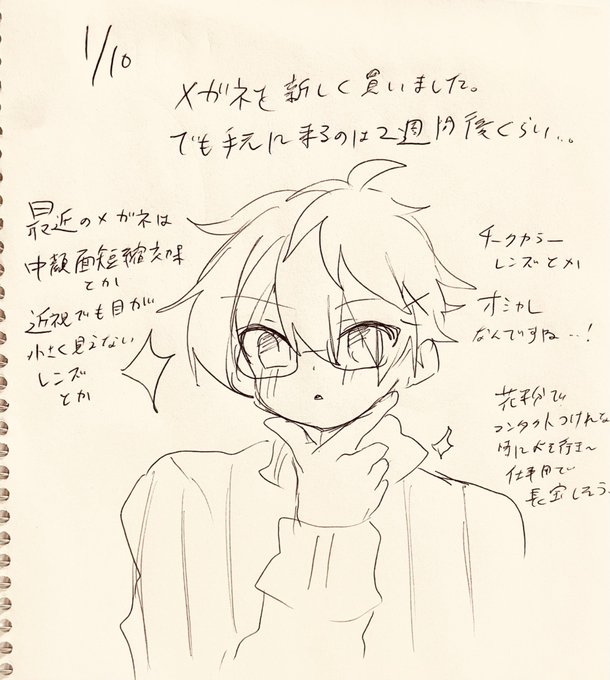 1/10
メガネを新しく買いました。
でも手元に来るのは2週間後くらい…
最近のメガネは
中顔面短縮効果
とか
近視でも目が
小さく見えない
レンズ
とか
チークカラー
レンズとか
オシャレ
なんですね…!
花粉で
コンタクトつけれない
時に
仕事用で
重宝しそう。